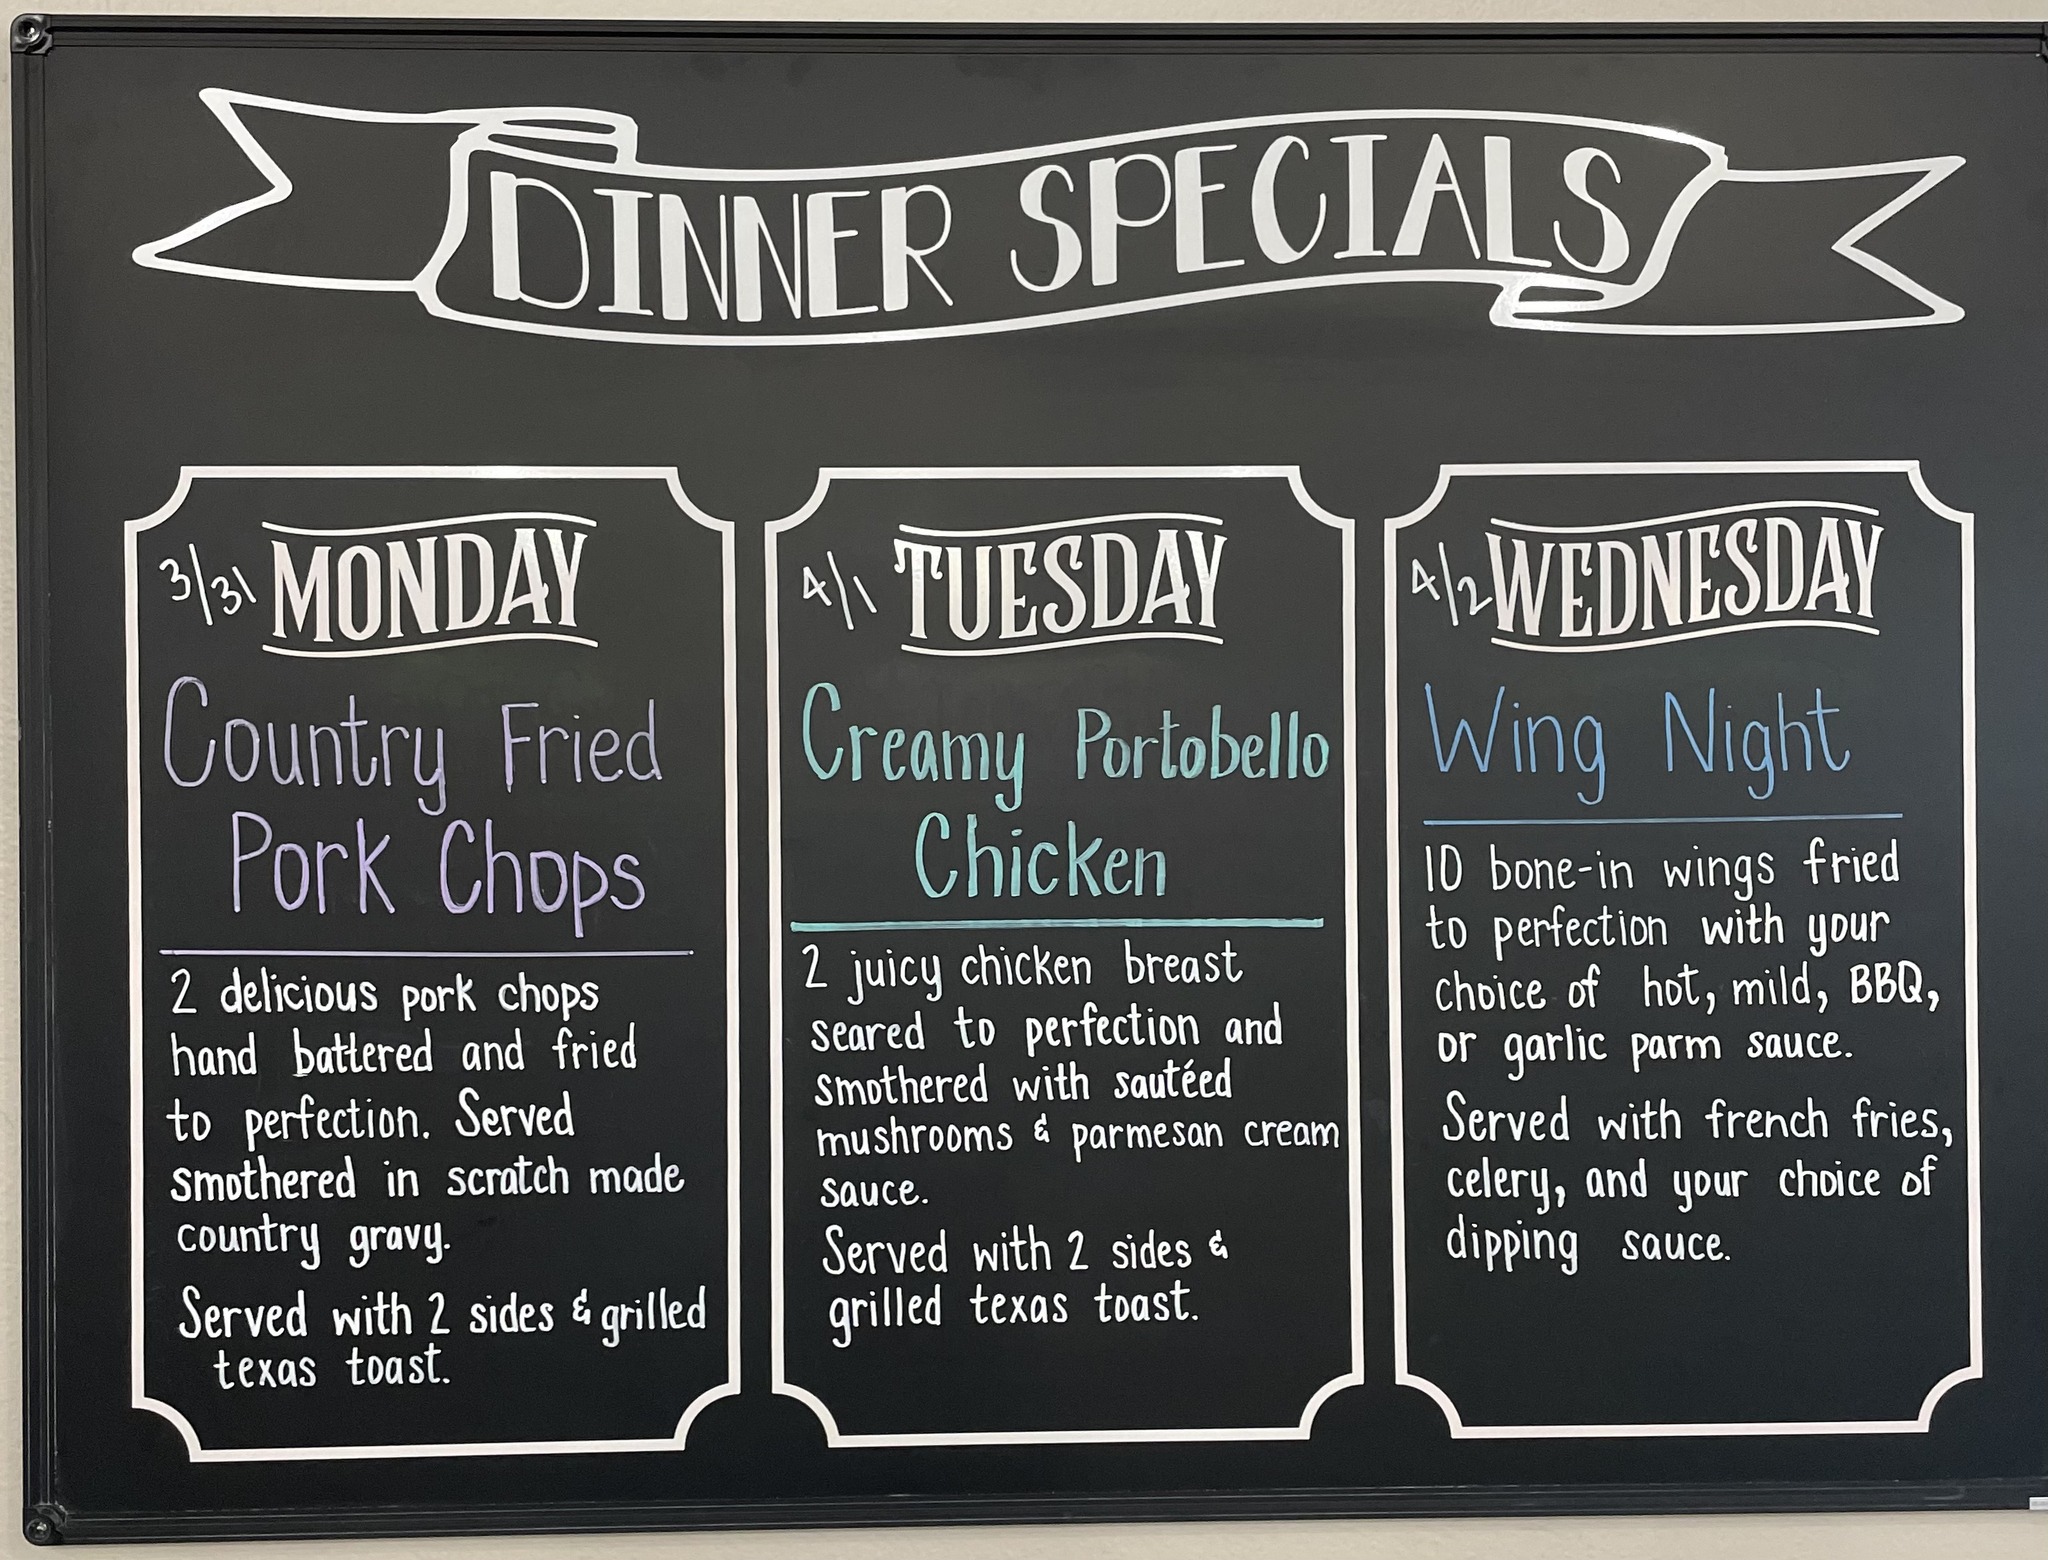 DINNER SPECIALS
3/31 MONDAY
Country Fried
Pork Chops
2 delicious pork chops
hand battered and fried
to perfection. Served
smothered in scratch made
country gravy.
Served with 2 sides & grilled
texas toast.
4/1 TUESDAY
Creamy Portobello
Chicken
2 juicy chicken breast
seared to perfection and
smothered with sautéed
mushrooms & parmesan cream
sauce.
Served with 2 sides &
grilled texas toast.
4/2 WEDNESDAY
Wing Night
10 bone-in wings fried
to perfection with your
choice of hot, mild, BBQ,
or garlic parm sauce.
Served with french fries,
celery, and your choice of
dipping sauce.